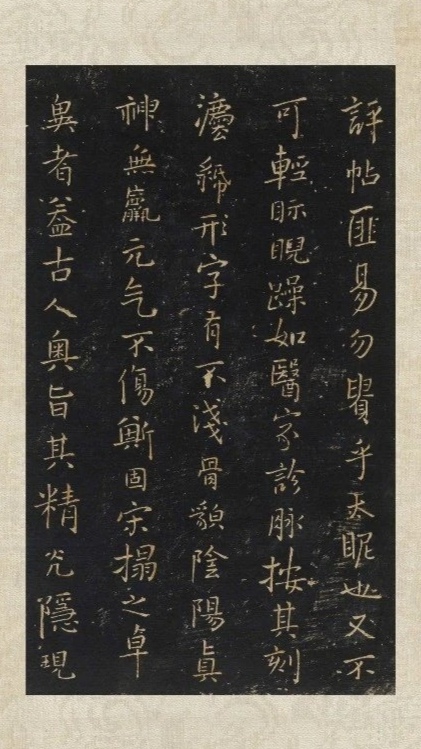 評帖匪易勿貴乎太昵也又不
可輕眎睨躁如醫家診脉按其刻
瀍形字有不淺骨貌陰陽真
神無羸元气不傷斯固宋搨之卓
異者葢古人奥旨其精光隱現